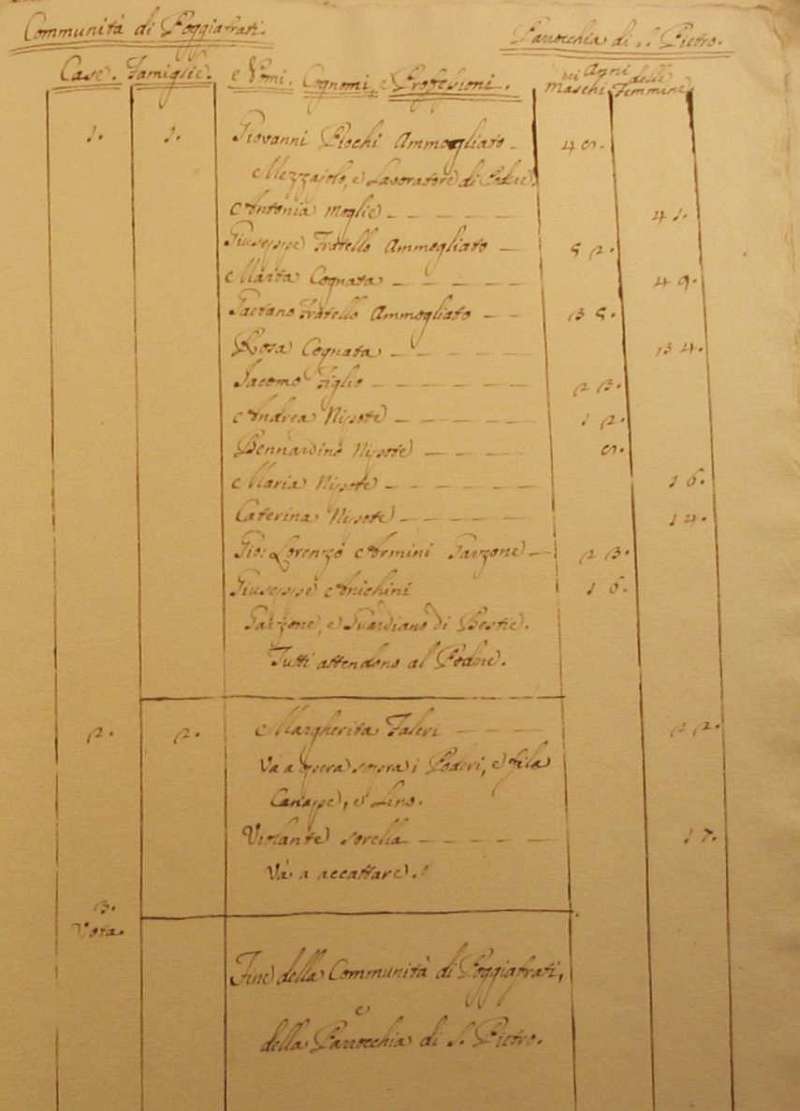 Communità di Poggiafrati.
Parocchia di S. Pietro.
Case. Famiglie. e Nomi, Cognomi, e Professioni. Anni
de Maschi delle Femmine
1. 1. Giovanni Piochi Ammogliato
e Mezzaiolo, e Lavoratore di Podere.
Antonia Moglie 41.
Giuseppe Fratello Ammogliato 52.
Marta Cognata 49.
Gaetano Fratello Ammogliato 35.
Rosa Cognata 34.
Giacomo Figlio 23.
Andrea Nipote 12.
Bennardino Nipote
Maria Nipote 16.
Caterina Nipote 14.
Gio: Lorenzo Armini Garzone 23.
Giuseppe Anichini 16.
Garzone, e Guardiano di Bestie.
Tutti attendono al Podere.
2. 2. Margherita Faleri 22.
Va a opera sopra i Poderi, e fila
Canape, e Lino.
Violante Sorella 17.
Va a accattare.
3.
Vota.
Fine della Communità di Poggiafrati,
e
della Parocchia di S. Pietro.